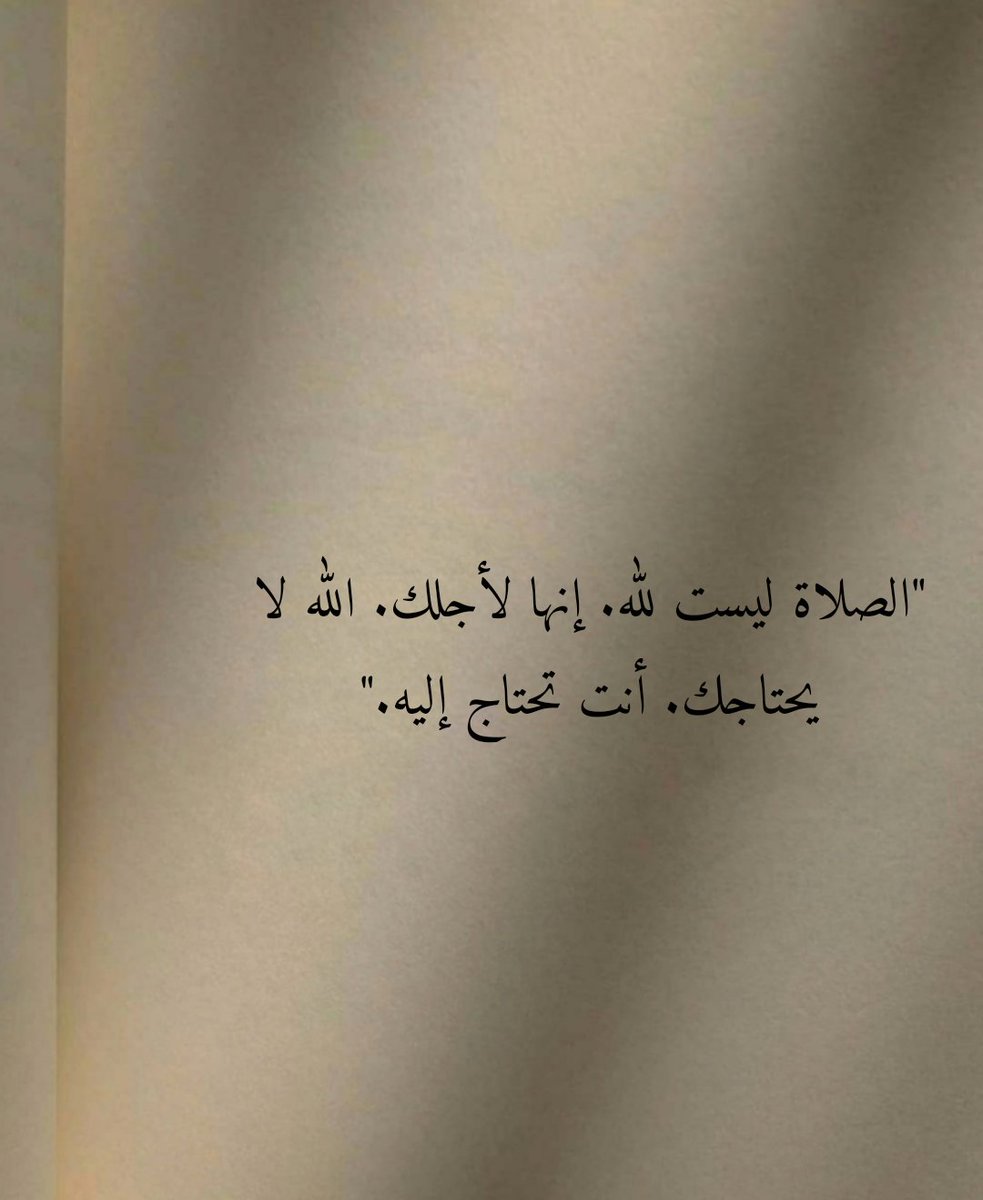 "الصلاة ليست لله. إنها لأجلك. الله لا
يحتاجك. أنت تحتاج إليه."